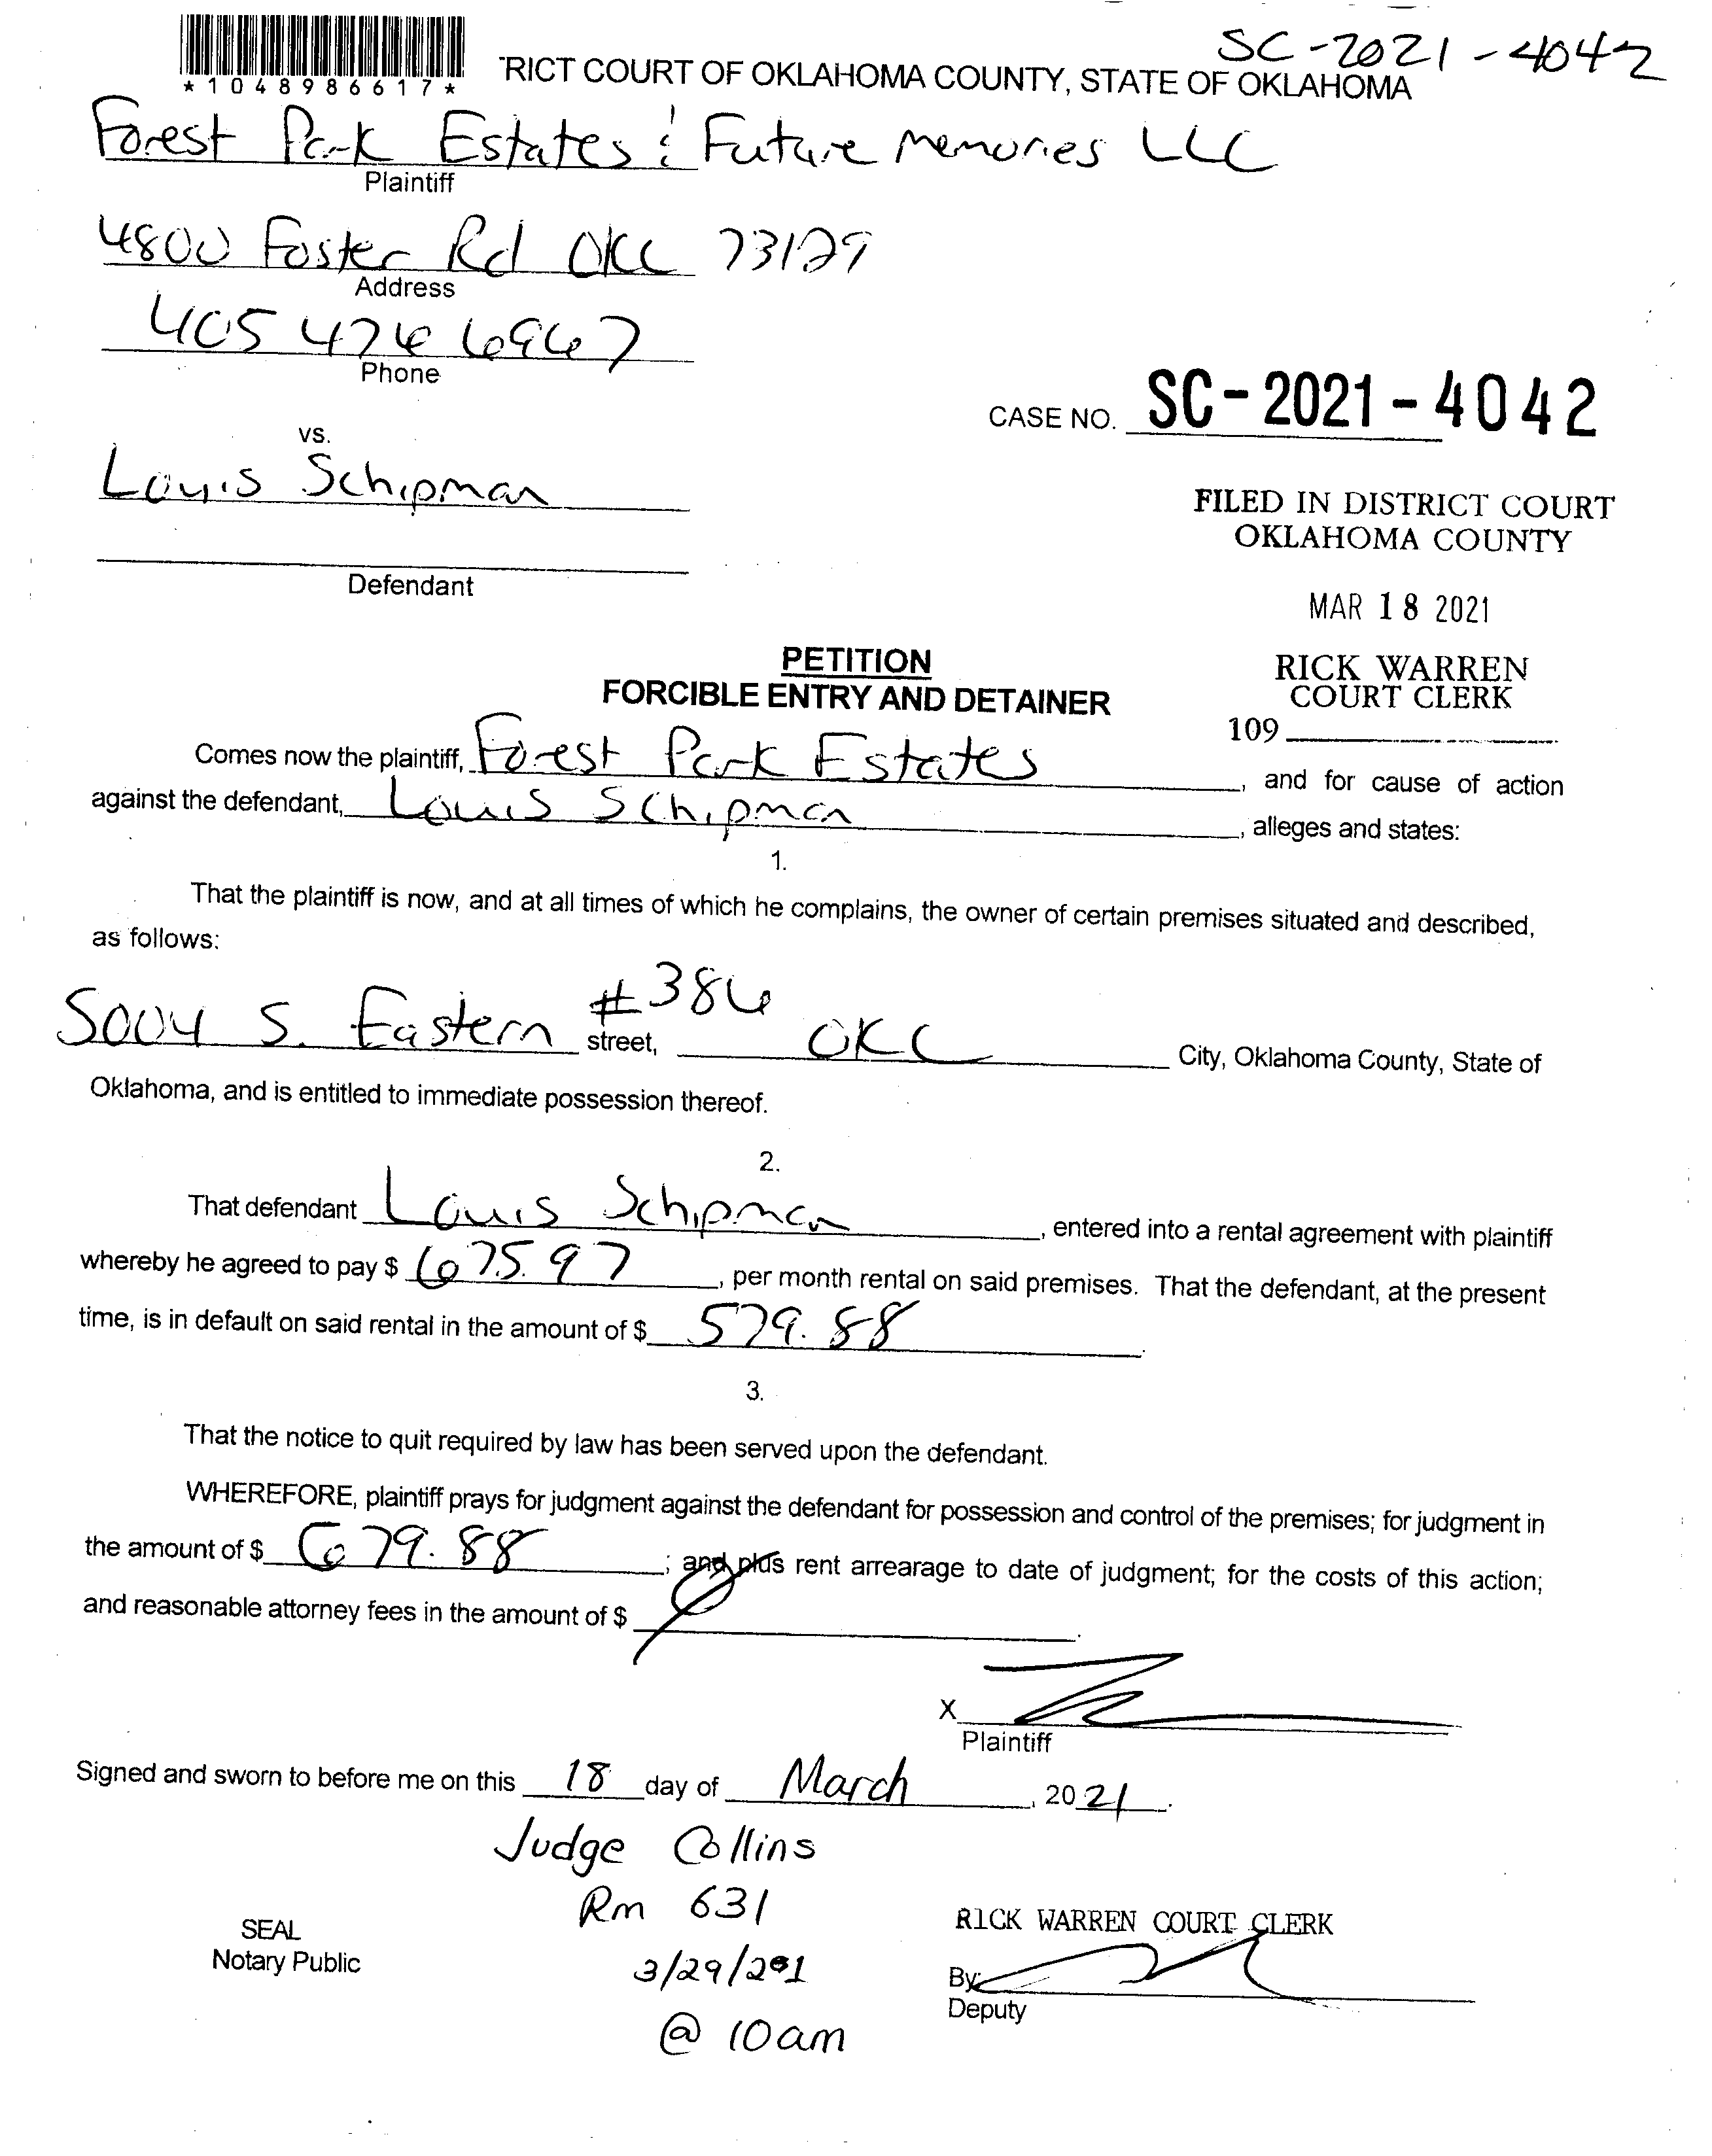 SC-2021-4042
*1048986617*
RICT COURT OF OKLAHOMA COUNTY, STATE OF OKLAHOMA
Forest Park Estates & Future Memories LLC
Plaintiff
4800 Foster Rd OKC 73129
Address
405 476 6967
Phone
CASE NO. SC-2021-4042
vs.
Louis Schipman
FILED IN DISTRICT COURT
OKLAHOMA COUNTY
Defendant
MAR 18 2021
PETITION
RICK WARREN
FORCIBLE ENTRY AND DETAINER
COURT CLERK
109
Comes now the plaintiff, Forest Park Estates, and for cause of action
against the defendant, Louis Schipman, alleges and states:
1.
That the plaintiff is now, and at all times of which he complains, the owner of certain premises situated and described,
as follows:
5004 S. Eastern #386 street, OKC City, Oklahoma County, State of
Oklahoma, and is entitled to immediate possession thereof.
2.
That defendant Louis Schipman, entered into a rental agreement with plaintiff
whereby he agreed to pay $ 675.97, per month rental on said premises. That the defendant, at the present
time, is in default on said rental in the amount of $ 579.88.
3.
That the notice to quit required by law has been served upon the defendant.
WHEREFORE, plaintiff prays for judgment against the defendant for possession and control of the premises; for judgment in
the amount of $ 679.88; and plus rent arrearage to date of judgment; for the costs of this action;
and reasonable attorney fees in the amount of $
X
Plaintiff
Signed and sworn to before me on this 18 day of March, 2021.
Judge Collins
Rm 631
SEAL
RICK WARREN COURT CLERK
Notary Public
3/29/201
By:
Deputy
@ 10am